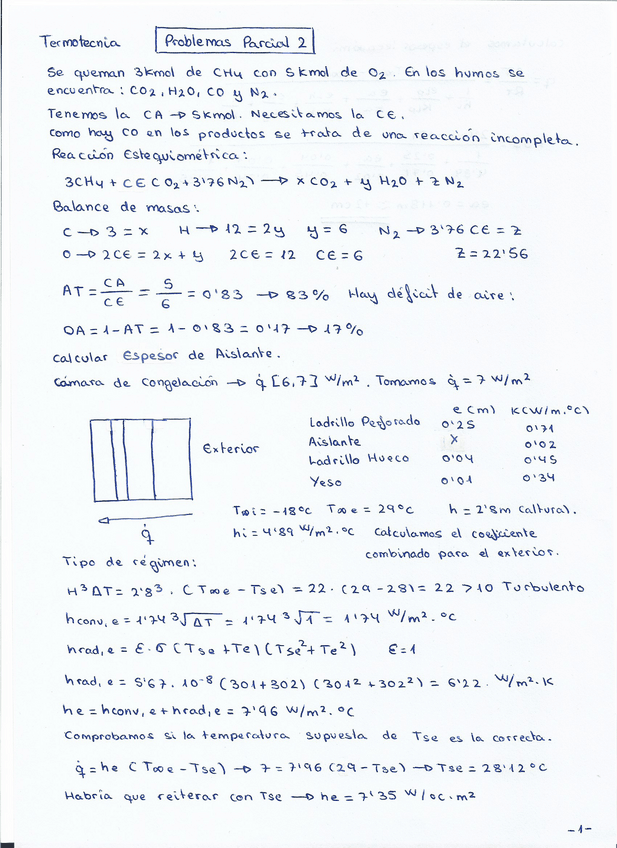 Termotecnia Problemas Parcial 2
Se queman 3kmol de CH4 con 5kmol de O2. En los humos se
encuentra: CO2, H2O, CO y N2.
Tenemos la CA → 5kmol. Necesitamos la CE.
como hay CO en los productos se trata de una reacción incompleta.
Reacción Estequiométrica:
3CH4 + CE(O2 + 3'76N2) → xCO2 + yH2O + zN2
Balance de masas:
C → 3 = x H → 12 = 2y y = 6 N2 → 3'76 CE = Z
O → 2CE = 2x + y 2CE = 12 CE = 6 Z = 22'56
AT = CA/CE = 5/6 = 0'83 → 83% Hay déficit de aire:
DA = 1 - AT = 1 - 0'83 = 0'17 → 17%
Calcular Espesor de Aislante.
Cámara de Congelación → q̇ [6,7] W/m². Tomamos q̇ = 7 W/m²
e(m) K(W/m.ºC)
Ladrillo Perforado 0'25 0'71
Exterior
Aislante X 0'02
Ladrillo Hueco 0'04 0'45
Yeso 0'01 0'34
T∞i = -18ºC T∞e = 29ºC h = 2'8m (altura).
q̇
hi = 4'89 W/m².ºC Calculamos el coeficiente
combinado para el exterior.
Tipo de régimen:
H³ΔT = 2'8³ · (T∞e - Tse) = 22 · (29 - 28) = 22 > 10 Turbulento
hconv,e = 1'74 ∛ΔT = 1'74 ∛1 = 1'74 W/m².ºC
hrad,e = ε · σ (Tse + Te)(Tse² + Te²) ε = 1
hrad,e = 5'67 · 10⁻⁸ (301 + 302)(301² + 302²) = 6'22 · W/m².K
he = hconv,e + hrad,e = 7'96 W/m².ºC
Comprobamos si la temperatura supuesta de Tse es la correcta.
q̇ = he (T∞e - Tse) → 7 = 7'96 (29 - Tse) → Tse = 28'12ºC
Habría que reiterar con Tse → he = 7'35 W/ºC.m²
-1-